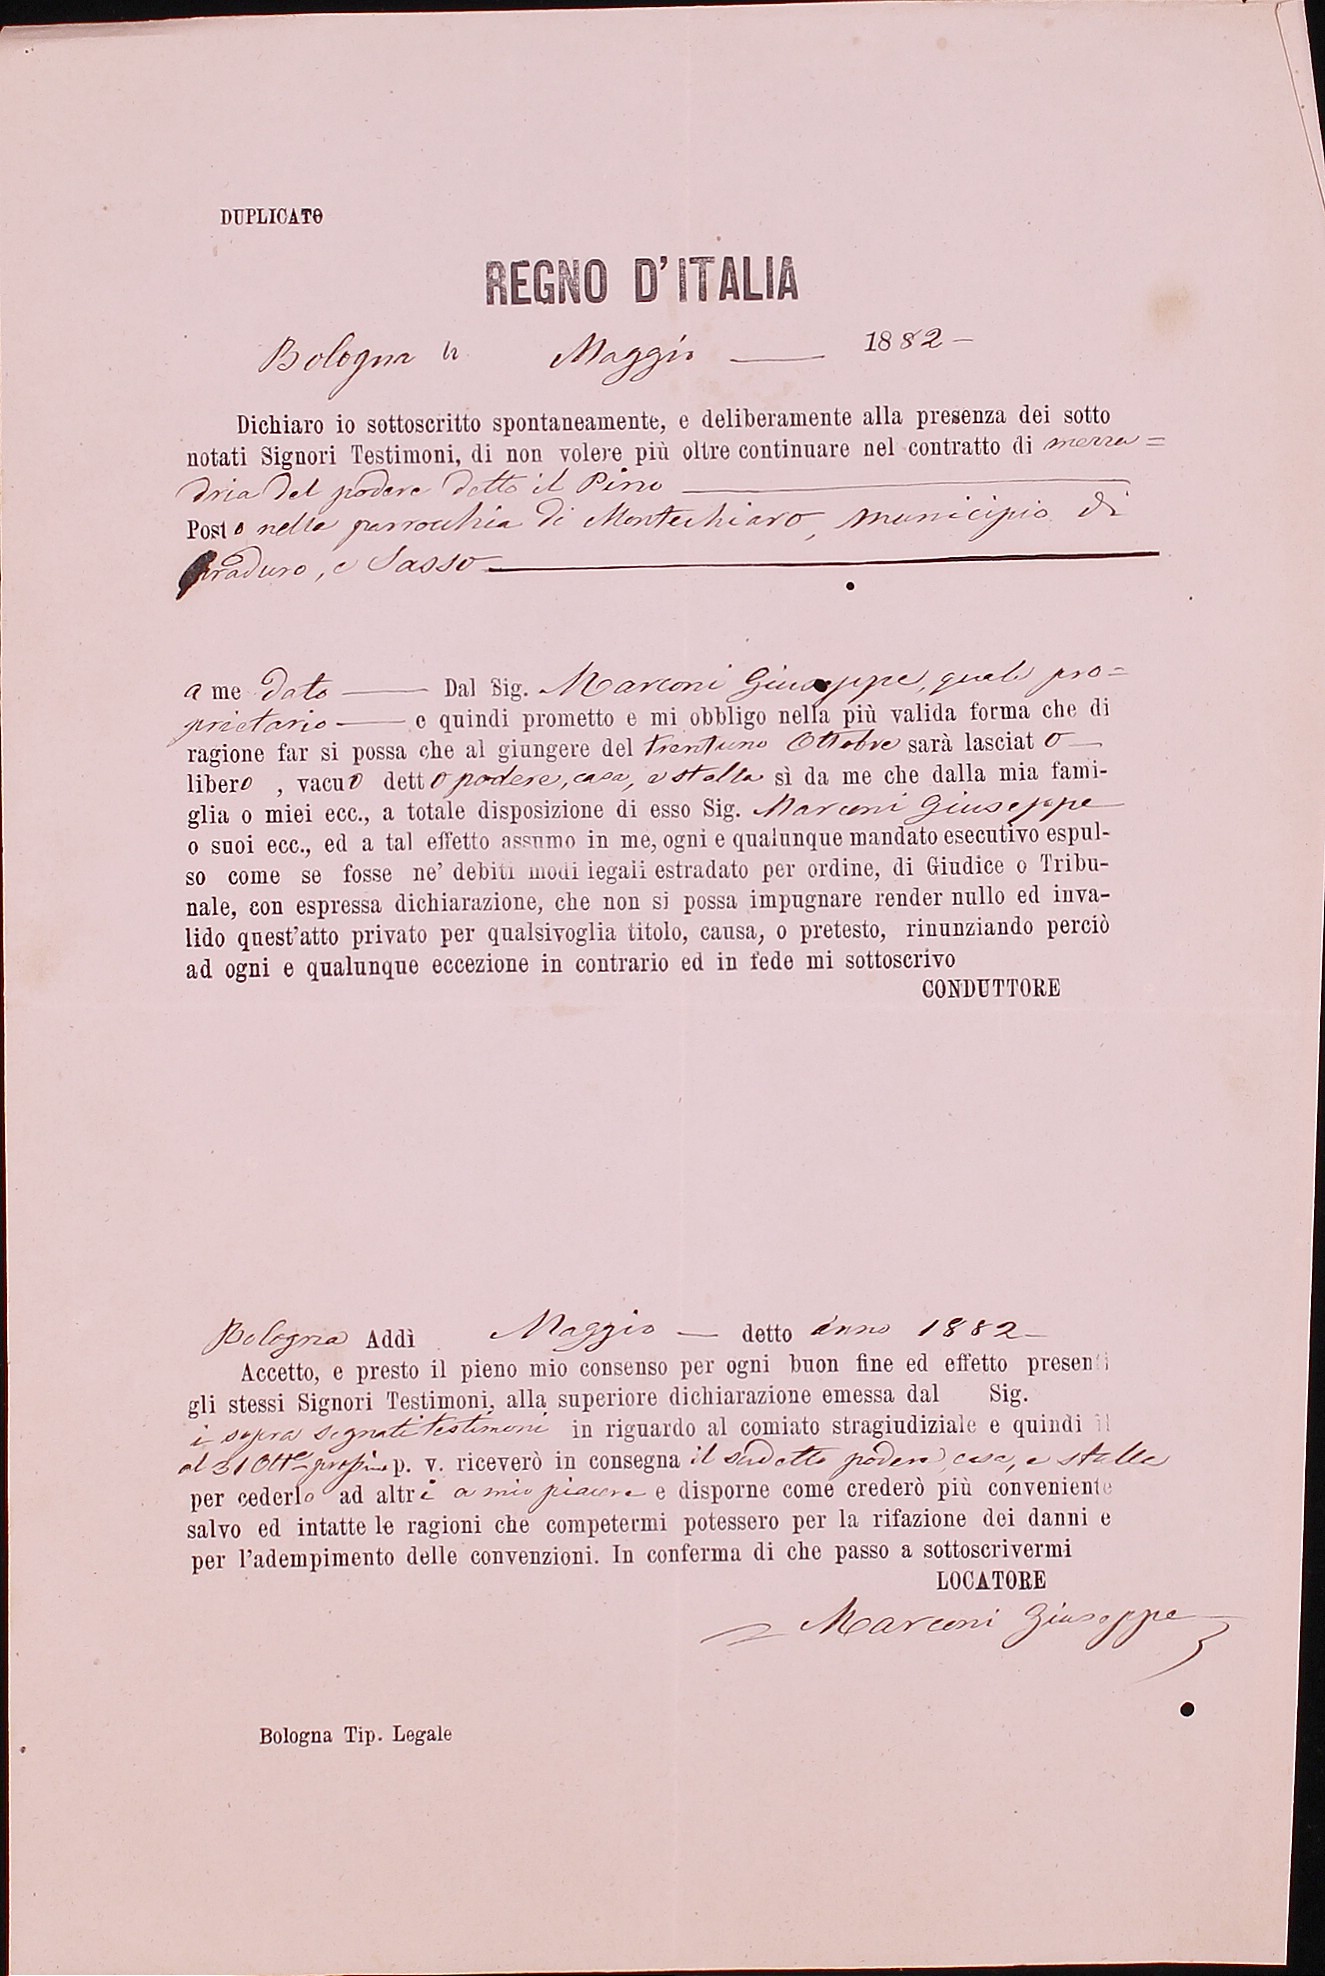 DUPLICATO
REGNO D'ITALIA
Bologna li Maggio 1882
Dichiaro io sottoscritto spontaneamente, e deliberamente alla presenza dei sotto
notati Signori Testimoni, di non volere più oltre continuare nel contratto di mezza=
dria del podere detto il Pino
Posto nella parrocchia di Montechiaro, municipio di
Praduro, e Sasso
a me dato Dal Sig. Marconi Giuseppe, quale pro=
prietario e quindi prometto e mi obbligo nella più valida forma che di
ragione far si possa che al giungere del trentuno Ottobre sarà lasciato
libero, vacuo detto podere, casa, e stalla sì da me che dalla mia fami-
glia o miei ecc., a totale disposizione di esso Sig. Marconi Giuseppe
o suoi ecc., ed a tal effetto assumo in me, ogni e qualunque mandato esecutivo espul-
so come se fosse ne' debiti modi legali estradato per ordine, di Giudice o Tribu-
nale, con espressa dichiarazione, che non si possa impugnare render nullo ed inva-
lido quest'atto privato per qualsivoglia titolo, causa, o pretesto, rinunziando perciò
ad ogni e qualunque eccezione in contrario ed in fede mi sottoscrivo
CONDUTTORE
Bologna Addì Maggio detto anno 1882
Accetto, e presto il pieno mio consenso per ogni buon fine ed effetto presenti
gli stessi Signori Testimoni, alla superiore dichiarazione emessa dal Sig.
i sopra segnati testimoni in riguardo al comiato stragiudiziale e quindi il
al 31 Ott.e p. v. riceverò in consegna il sudetto podere, casa, e stalla
per cederlo ad altri a mio piacere e disporne come crederò più conveniente
salvo ed intatte le ragioni che competermi potessero per la rifazione dei danni e
per l'adempimento delle convenzioni. In conferma di che passo a sottoscrivermi
LOCATORE
Marconi Giuseppe
Bologna Tip. Legale